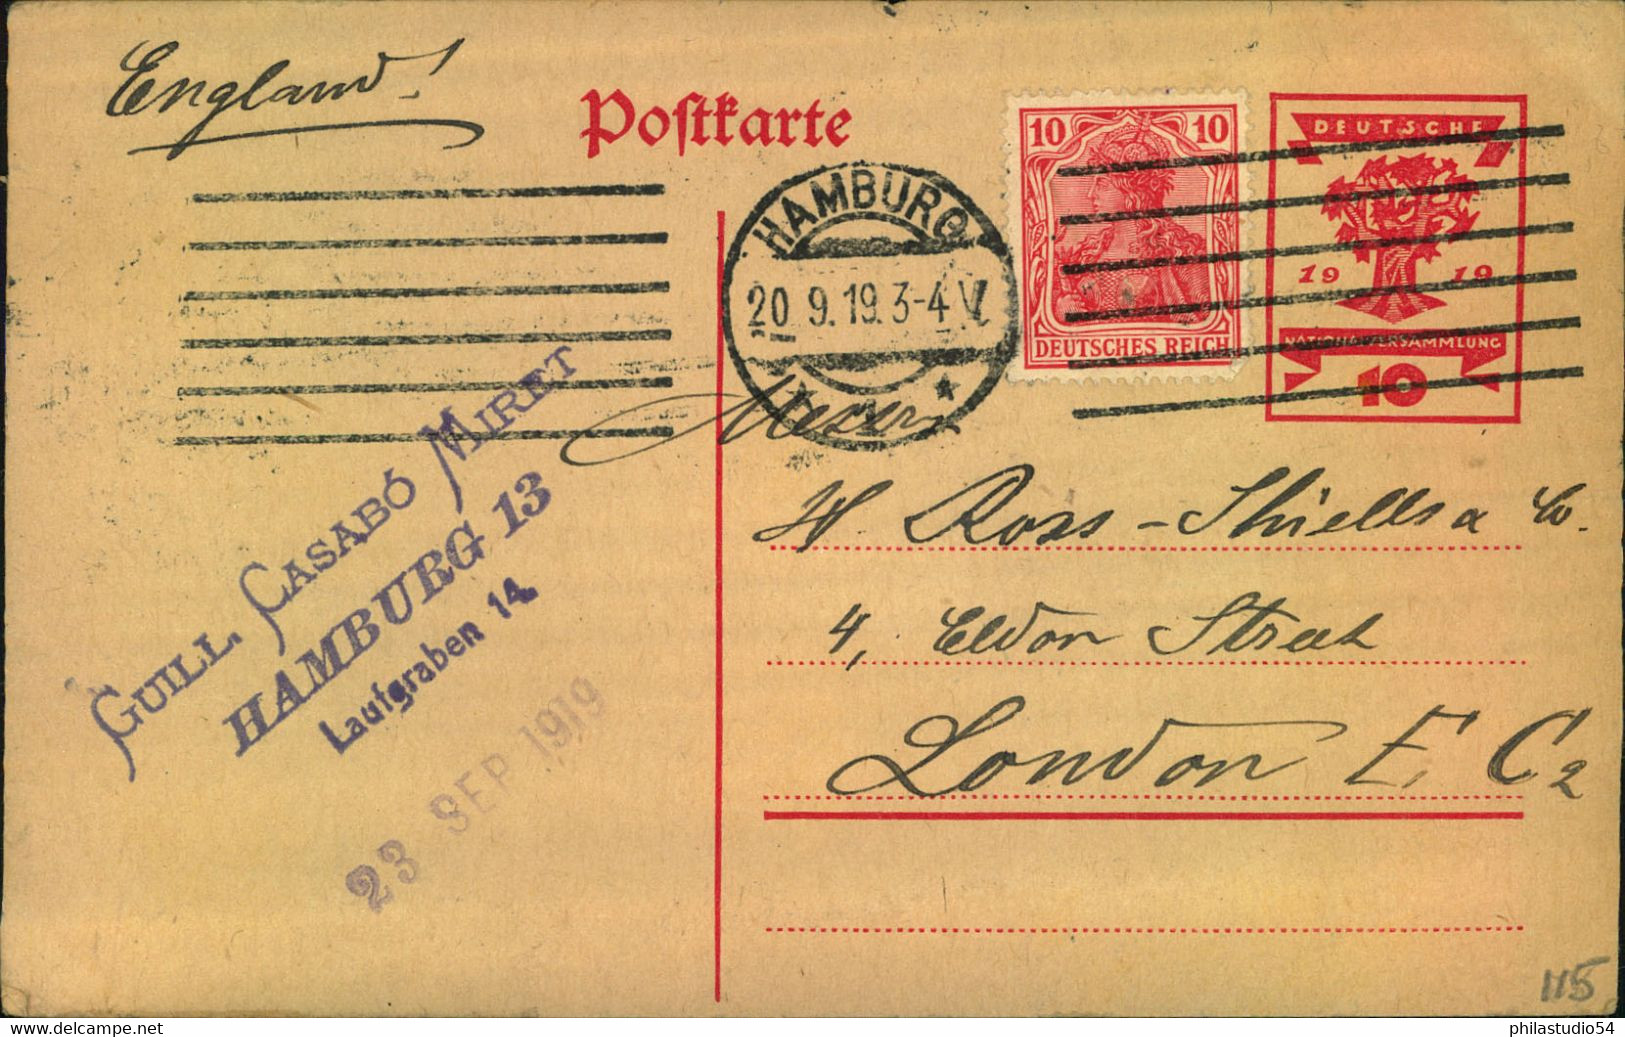 England!
Postkarte
10 10
DEUTSCHES REICH
DEUTSCHE
19 19
NATIONALVERSAMMLUNG
10
HAMBURG
20. 9. 19. 3-4 V.
1
*
Messrs
W. Ross-Shiells & Co.
4, Eldon Street
London E. C2
GUILL. CASABÓ MIRET
HAMBURG 13
Laufgraben 14.
23 SEP 1919
115
https://www.delcampe.net
philastudio54